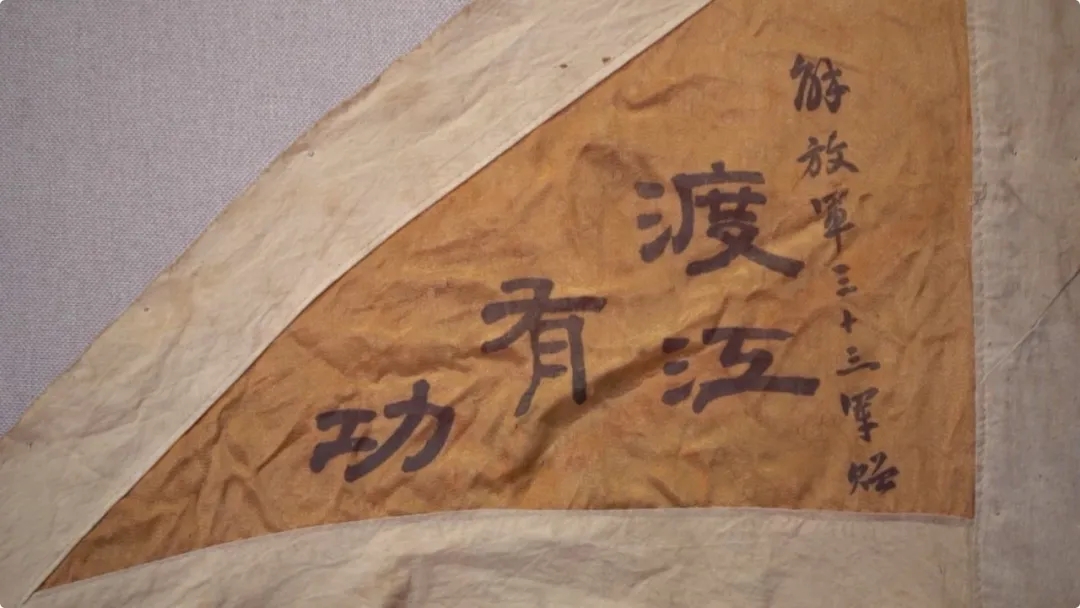 解放軍三十三軍贈
渡江
有
功